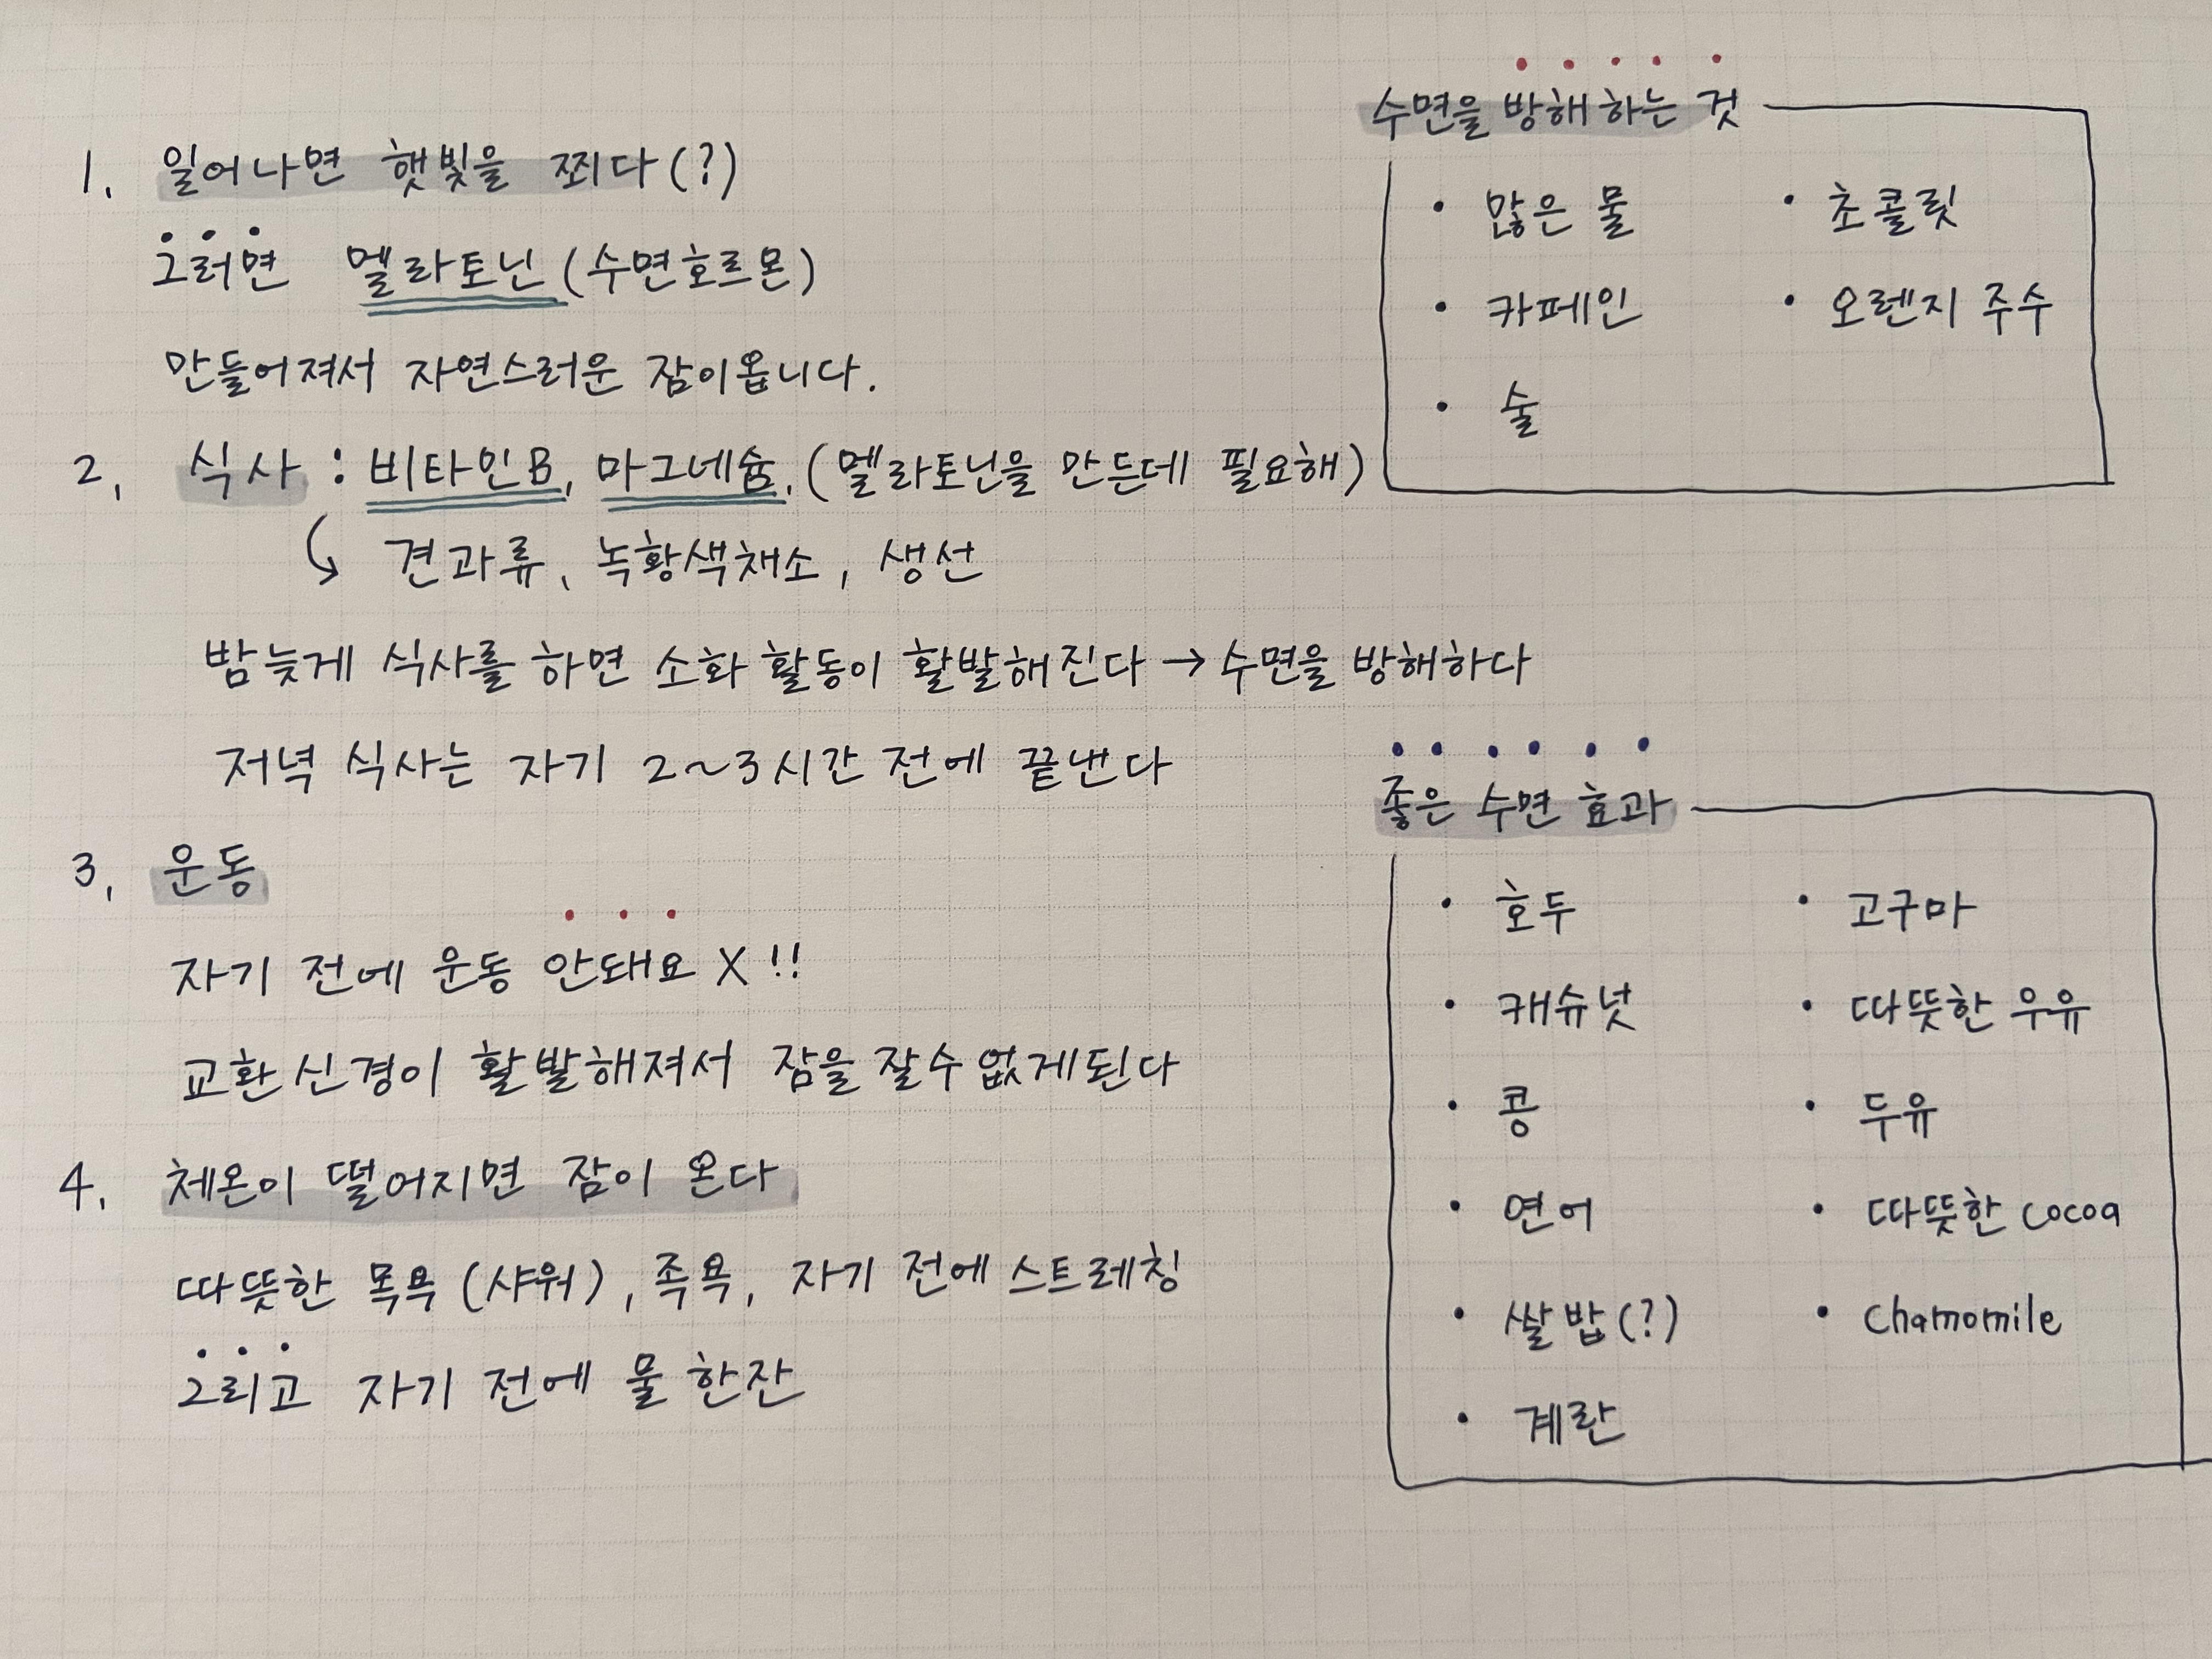 1. 일어나면 햇빛을 쬐다(?)
그러면 멜라토닌(수면호르몬)
만들어져서 자연스러운 잠이옵니다.
2. 식사 : 비타민B, 마그네슘, (멜라토닌을 만든데 필요해)
견과류, 녹황색채소, 생선
밤늦게 식사를 하면 소화 활동이 활발해진다 → 수면을 방해하다
저녁 식사는 자기 2~3시간 전에 끝낸다
3. 운동
자기 전에 운동 안돼요 X !!
교환신경이 활발해져서 잠을 잘수없게된다
4. 체온이 떨어지면 잠이 온다
따뜻한 목욕 (샤워), 족욕, 자기 전에 스트레칭
그리고 자기 전에 물 한잔
수면을 방해하는 것
• 많은 물
• 카페인
• 술
• 초콜릿
• 오렌지 주수
좋은 수면 효과
• 호두
• 캐슈넛
• 콩
• 연어
• 쌀밥(?)
• 계란
• 고구마
• 따뜻한 우유
• 두유
• 따뜻한 cocoa
• Chamomile